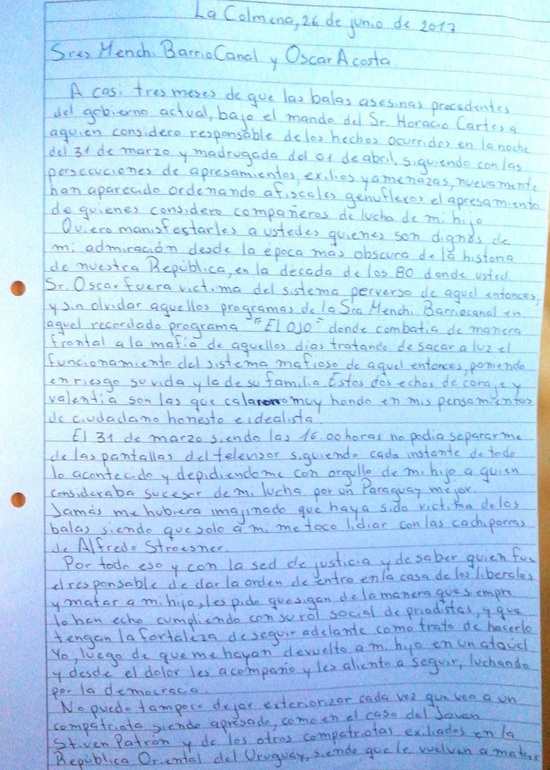 La Colmena, 26 de junio de 2017
Sres Menchi Barriocanal y Oscar Acosta
A casi tres meses de que las balas asesinas procedentes
del gobierno actual, bajo el mando del Sr. Horacio Cartes a
aquien considero responsable de los hechos ocurridos en la noche
del 31 de marzo y madrugada del 01 de abril, siguiendo con las
persecuciones de apresamientos, exilios y amenazas, nuevamente
han aparecido ordenando afiscales genuflexos el apresamiento
de quienes considero compañeros de lucha de mi hijo
Quiero manisfestarles a ustedes quienes son dignos de
mi admiración desde la epoca mas obscura de la historia
de nuestra República, en la década de los 80 donde usted
Sr. Oscar fuera victima del sistema perverso de aquel entonces,
y sin olvidar aquellos programas de la Sra Menchi Barriocanal en
aquel recordado programa "El OJO" donde combatia de manera
frontal a la mafia de aquellos dias tratando de sacar a luz el
funcionamiento del sistema mafioso de aquel entonces, poniendo
en riesgo su vida y la de su familia. Estos dos echos de coraje y
valentia son las que calaron muy hondo en mis pensamientos
de ciudadano honesto e idealista.
El 31 de marzo siendo las 16:00 horas no podia separarme
de las pantallas del televisor siguiendo cada instante de todo
lo acontecido y depidiendome con orgullo de mi hijo a quien
consideraba sucesor de mi lucha por un Paraguay mejor.
Jamás me hubiera imaginado que haya sido victima de las
balas siendo que solo a mi me toco lidiar con las cachiporras
de Alfredo Stroesner.
Por todo eso y con la sed de justicia y de saber quien fue
el responsable de dar la orden de entro en la casa de los liberales
y matar a mi hijo, les pido que sigan de la manera que siempre
lo han echo cumpliendo con su rol social de priodistas, y que
tengan la fortaleza de seguir adelante como trato de hacerlo
Yo, luego de que me hayan devuelto a mi hijo en un ataúd
y desde el dolor les acompaño y les aliento a seguir, luchando
por la democracia.
No puedo tampoco dejar exteriorizar cada vez que veo a un
compatriota siendo apresado, como en el caso del Joven
Stiven Patrón y de los otros compatriotas exiliados en la
República Oriental del Uruguay, siendo que le vuelvan a matar